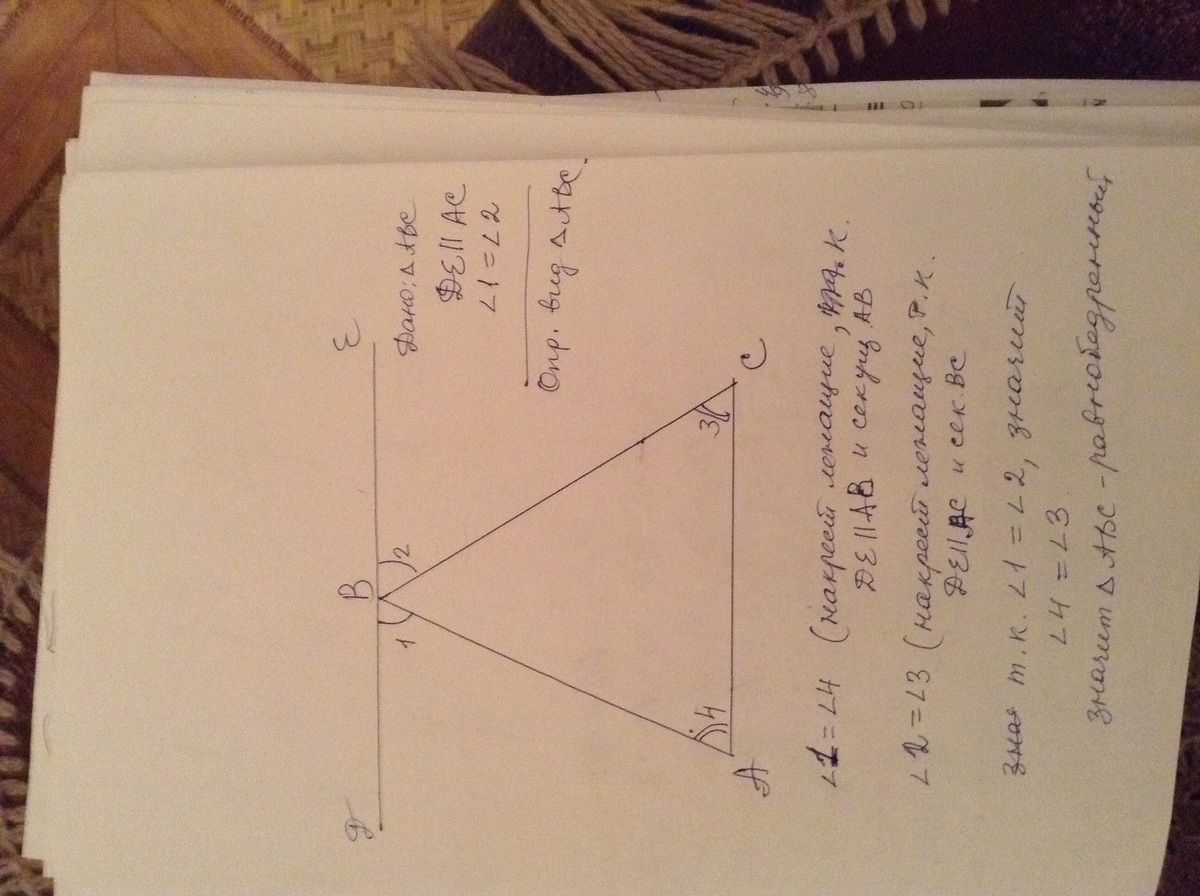 Дано: Δ ABC
DE || AC
∠1 = ∠2
Опр. вид Δ ABC.
D B E
1 2
4 3
A C
∠1 = ∠4 (накрест лежащие, т.к.
DE || AB и секущ. AB
∠2 = ∠3 (накрест лежащие, т.к.
DE || AC и сек. BC
Зная т.к. ∠1 = ∠2, значит
∠4 = ∠3
значит Δ ABC - равнобедренный